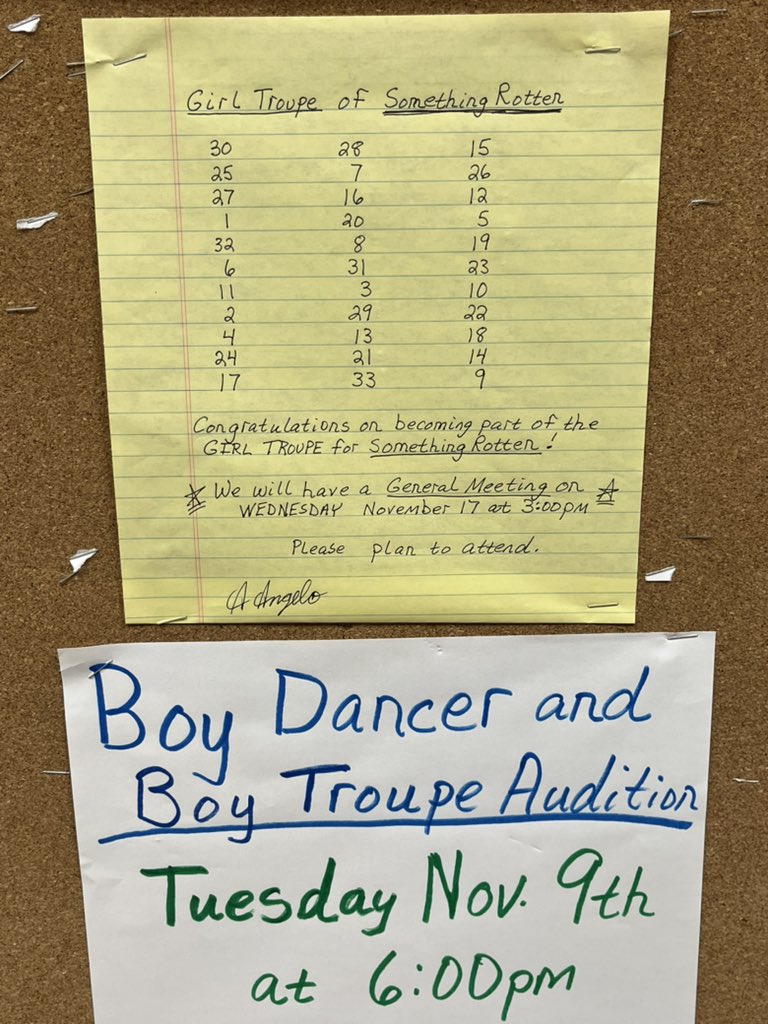 Girl Troupe of Something Rotten
30 28 15
25 7 26
27 16 12
1 20 5
32 8 19
6 31 23
11 3 10
2 29 22
4 13 18
24 21 14
17 33 9
Congratulations on becoming part of the
GIRL TROUPE for Something Rotten!
We will have a General Meeting on
WEDNESDAY November 17 at 3:00pm
Please plan to attend.
A Angelo
Boy Dancer and
Boy Troupe Audition
Tuesday Nov. 9th
at 6:00pm